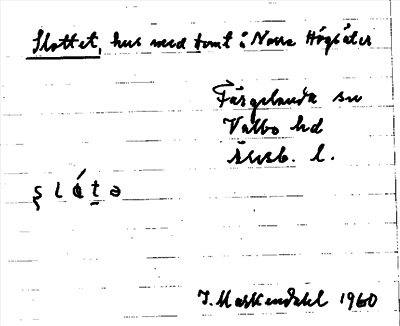 Slottet, hus med tomt i Norra Högsäter
Färgelanda sn
Valbo hd
Älvsb. l.
I. Markendahl 1960